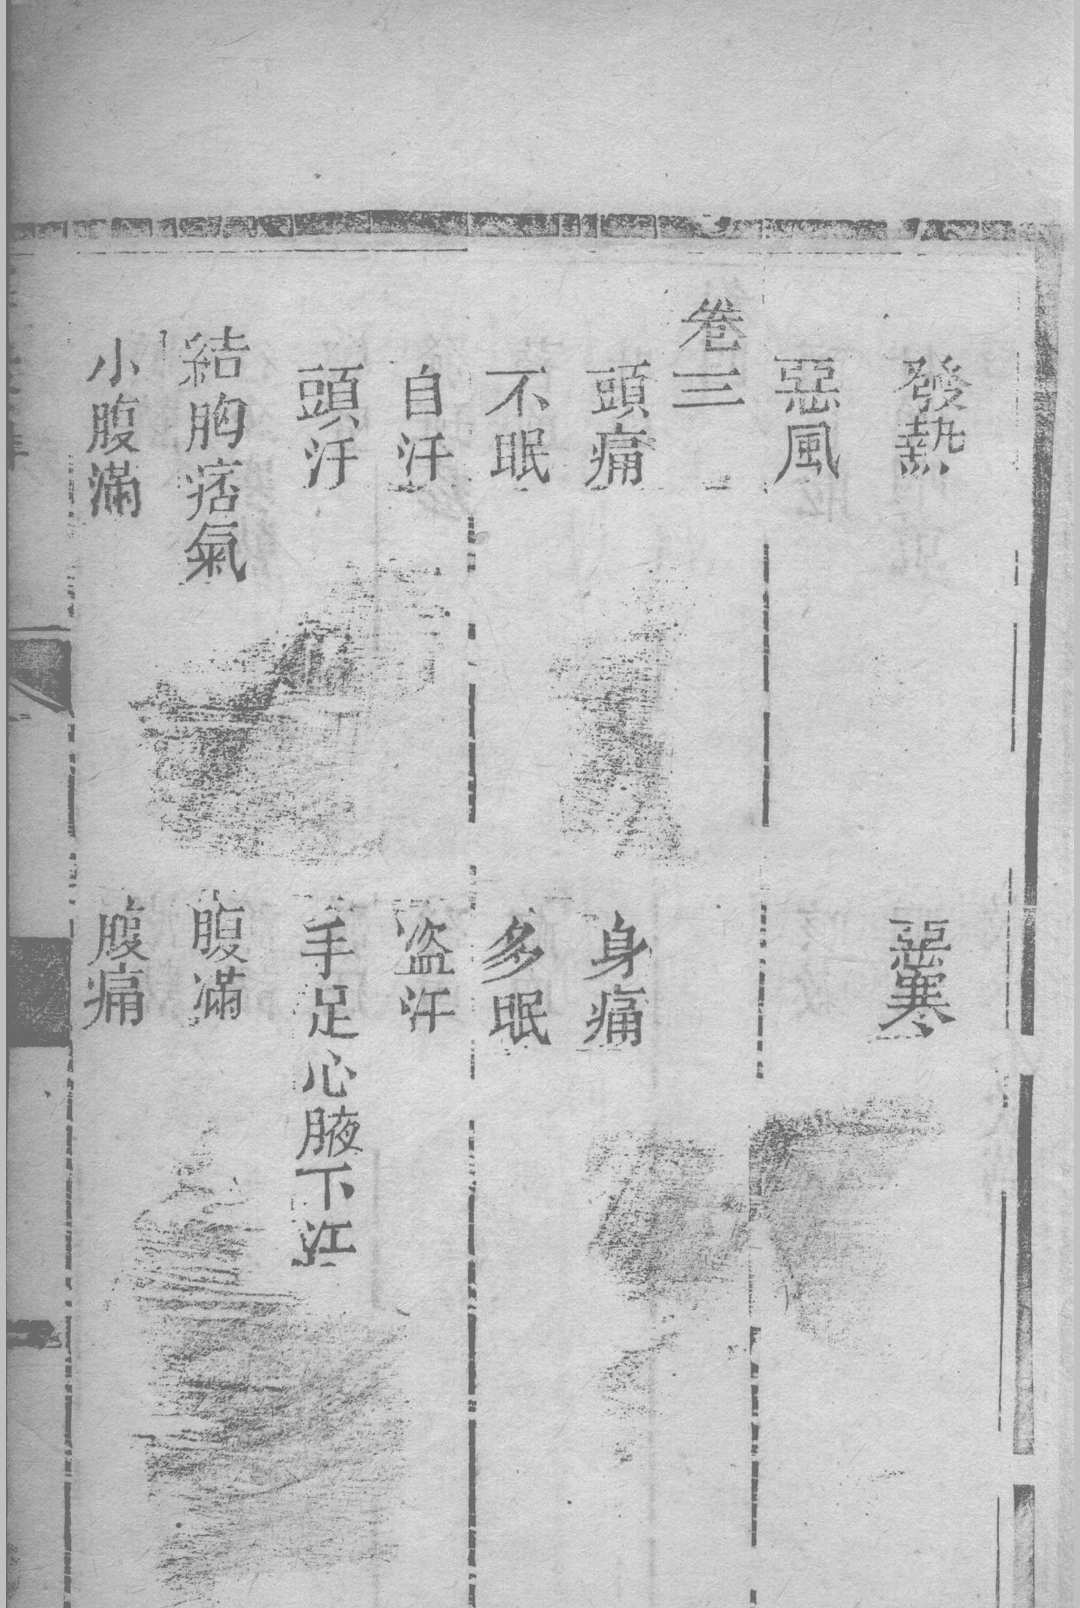 發熱　惡寒
惡風
卷三
頭痛　身痛
不眠　多眠
自汗　盜汗
頭汗　手足心腋下汗
結胸痞氣　腹滿
小腹滿　腹痛